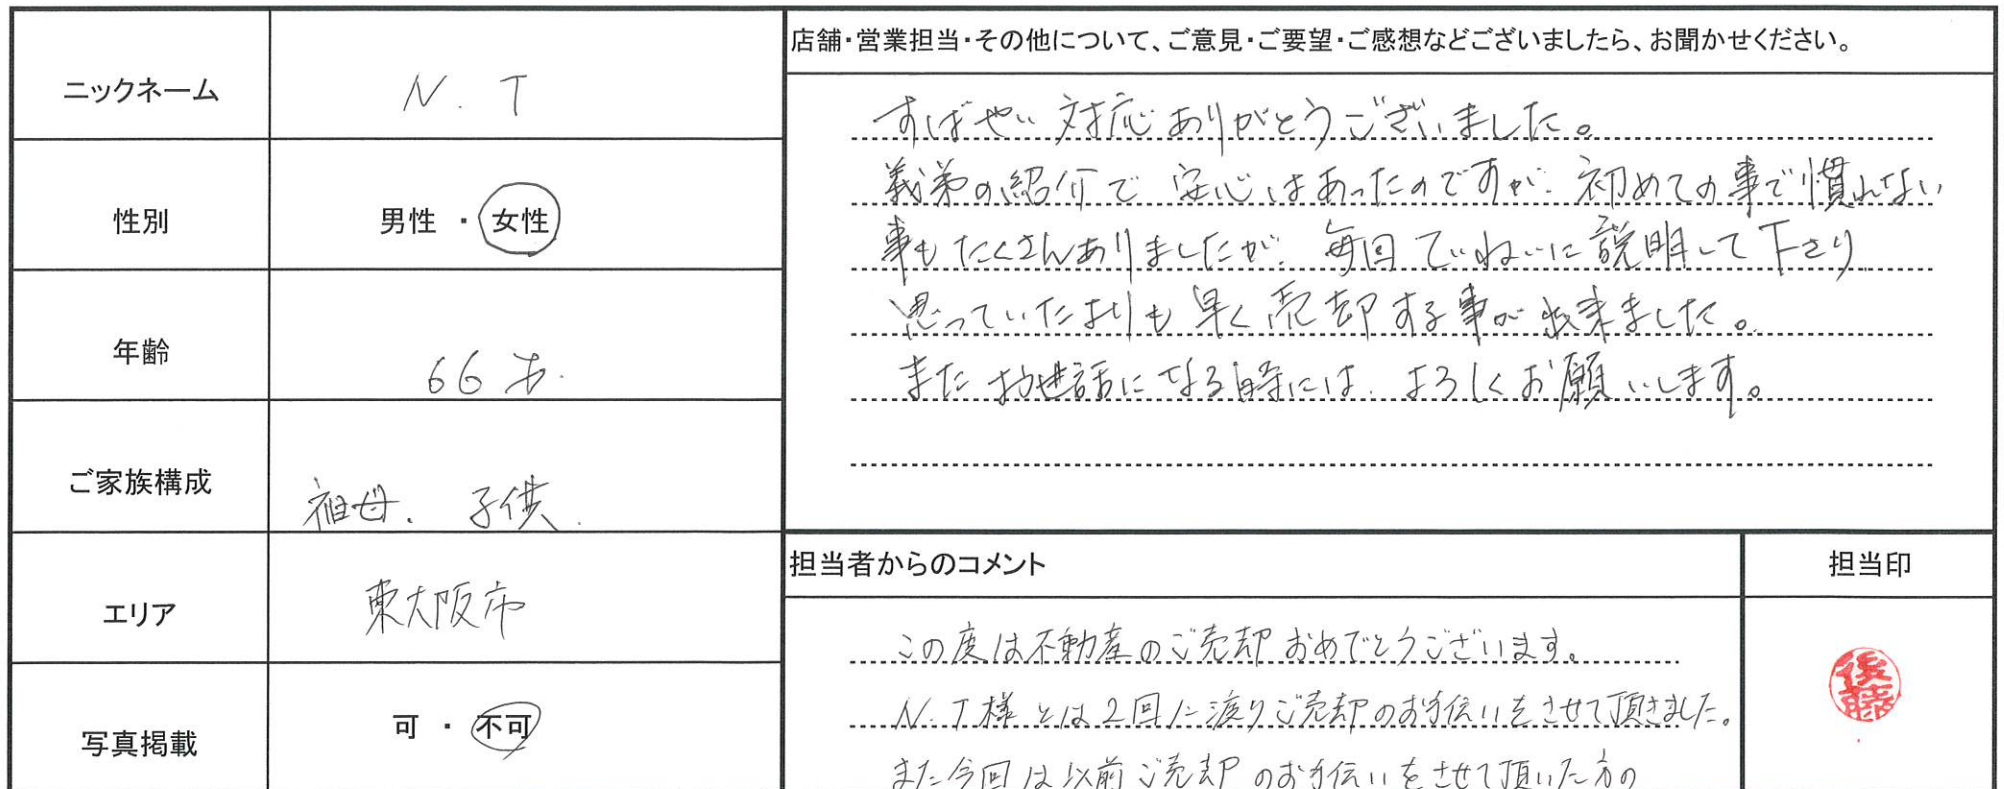 ニックネーム
N.T
性別
男性・女性
年齢
66才.
ご家族構成
祖母. 子供.
エリア
東大阪市
写真掲載
可・不可
店舗・営業担当・その他について、ご意見・ご要望・ご感想などございましたら、お聞かせください。
すばやい対応ありがとうございました。
義弟の紹介で安心はあったのですが、初めての事で慣れない
事もたくさんありましたが、毎回ていねいに説明して下さり
思っていたよりも早く売却する事が出来ました。
またお世話になる時には、よろしくお願いします。
担当者からのコメント
この度は不動産のご売却おめでとうございます。
N.T様とは2回に渡りご売却のお手伝いをさせて頂きました。
また今回は以前ご売却のお手伝いをさせて頂いた方の
担当印
後藤